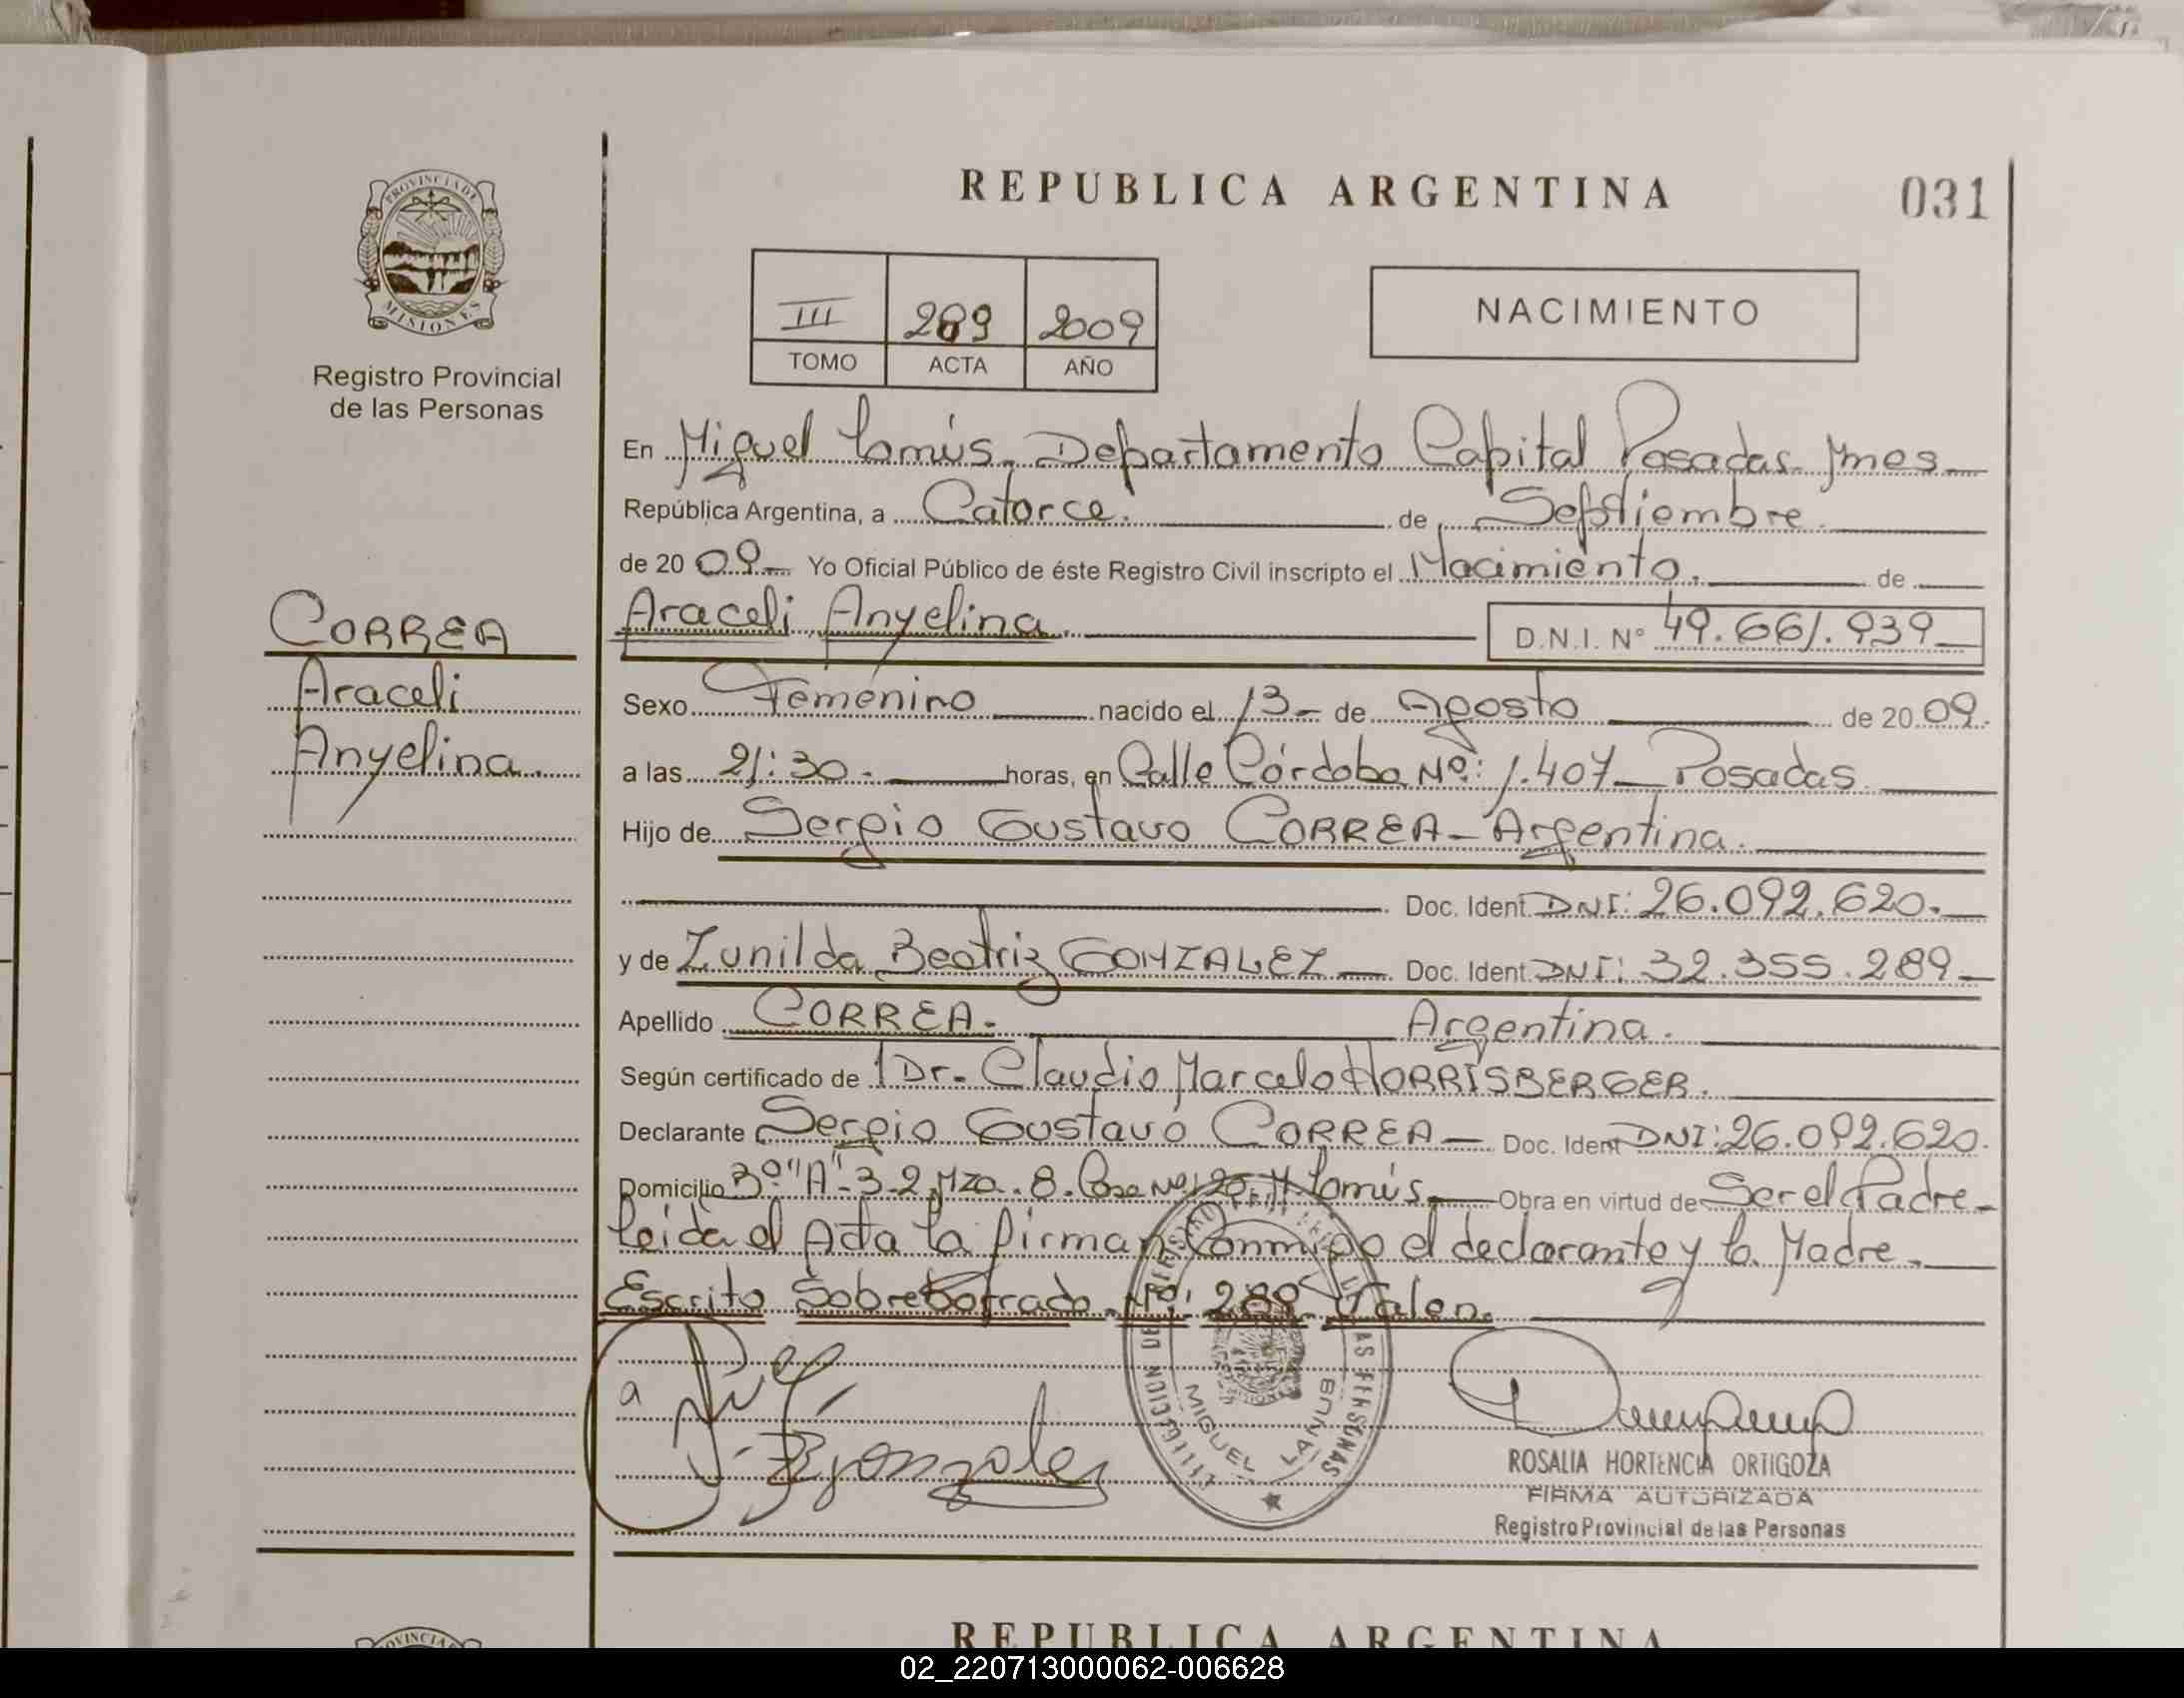 REPUBLICA ARGENTINA
031
PROVINCIA DE
MISIONES
Registro Provincial
de las Personas
III 289 2009
TOMO ACTA AÑO
NACIMIENTO
En Miguel Lanús, Departamento Capital Posadas Mnes
República Argentina, a Catorce. de Septiembre
de 20 09 Yo Oficial Público de éste Registro Civil inscripto el Nacimiento. de
Araceli Anyelina. D.N.I. Nº 49.661.939
CORREA
Araceli
Anyelina.
Sexo Femenino nacido el 13 de Agosto de 20 09.
a las 21:30 horas, en Calle Córdoba Nº: 1.407 Posadas
Hijo de Sergio Gustavo CORREA - Argentina.
Doc. Ident. DNI: 26.092.620.
y de Zunilda Beatriz GONZALEZ Doc. Ident. DNI: 32.355.289
Apellido CORREA. Argentina.
Según certificado de Dr. Claudio Marcelo HORRISBERGER.
Declarante Sergio Gustavo CORREA Doc. Ident DNI: 26.092.620.
Domicilio 3º "A" 3-2 Mza. 8. Casa Nº: M. Lanús Obra en virtud de Ser el Padre
Leida el Acta la firman Conmigo el declarante y la Madre.
Escrito Sobreborrado Nº: 289 Valen.
a
B gonzalez
MIGUEL LANUS
ROSALIA HORTENCIA ORTIGOZA
FIRMA AUTORIZADA
Registro Provincial de las Personas
REPUBLICA ARGENTINA
02_220713000062-006628